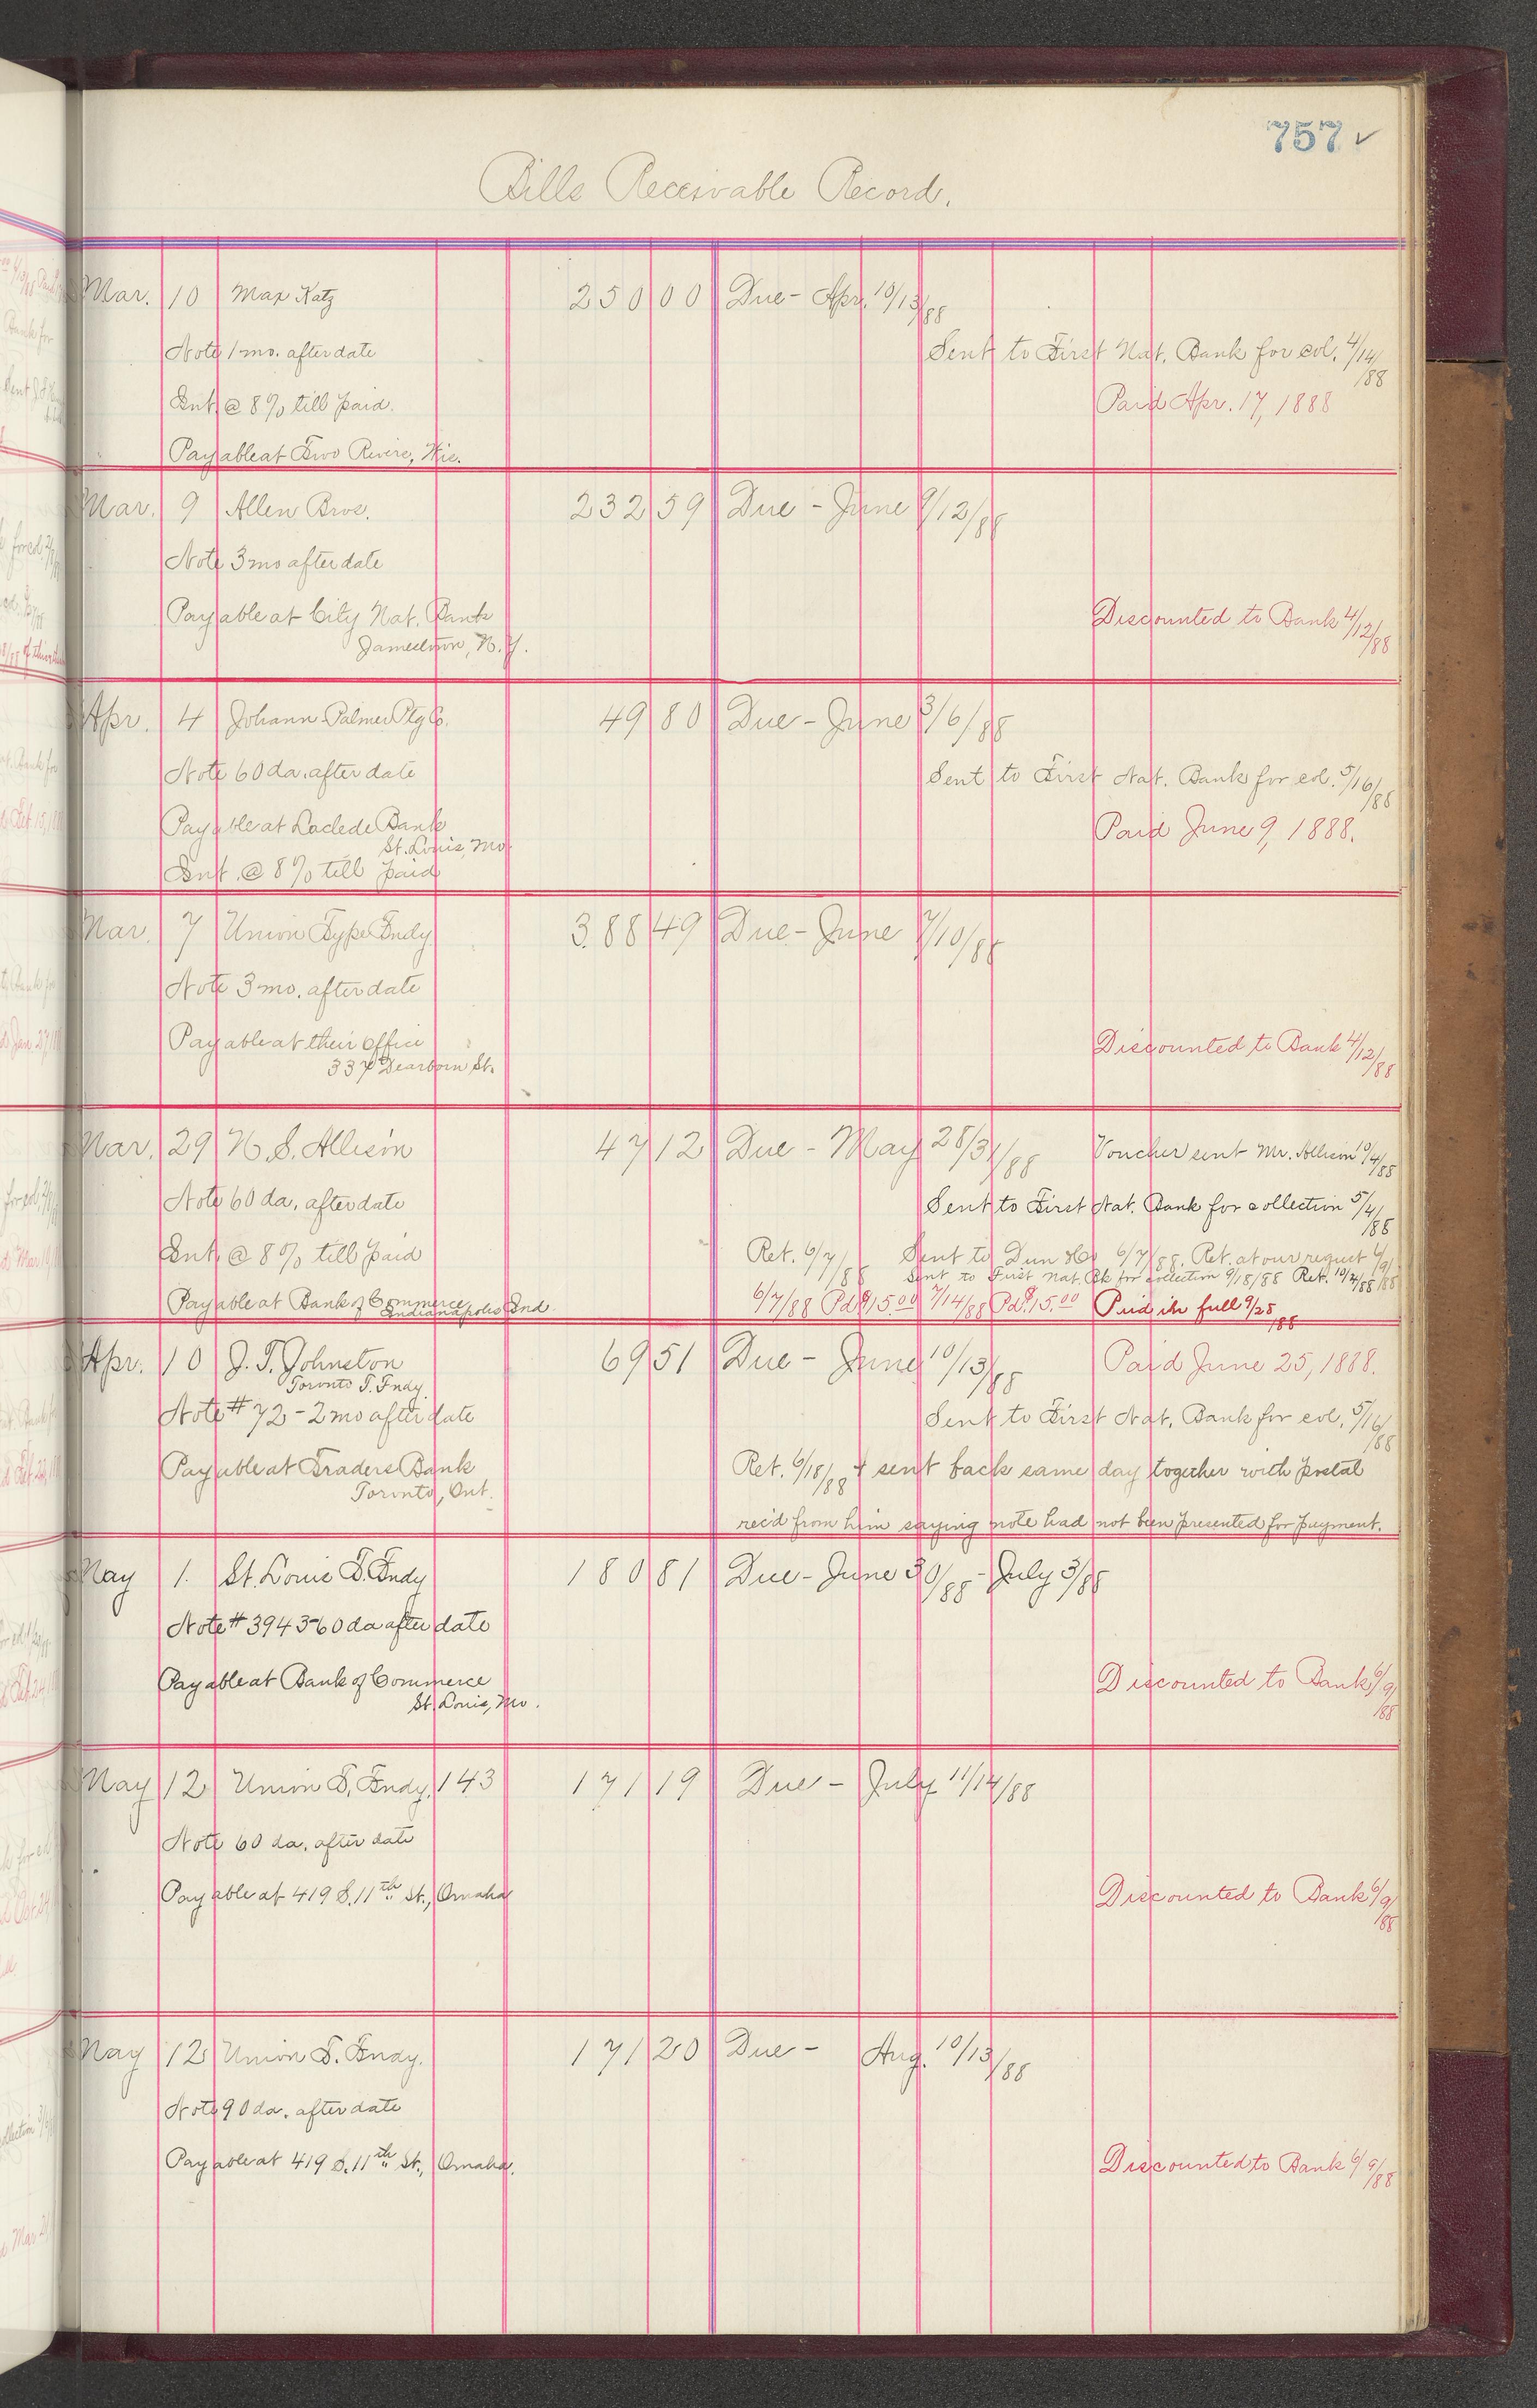 757 ✓
Bills Receivable Record.
Mar. 10 Max Katz 250 00 Due - Apr. 10/13/88
Note 1 mo. after date Sent to First Nat. Bank for col. 4/14/88
Int @ 8% till paid. Paid Apr. 17, 1888
Payable at Two Rivers, Wis.
Mar. 9 Allen Bros. 232 59 Due - June 9/12/88
Note 3 mo after date
Payable at City Nat. Bank Discounted to Bank 4/12/88
Jamestown, N.Y.
Apr. 4 Johann Palmer Ptg Co. 49 80 Due - June 3/6/88
Note 60 da. after date Sent to First Nat. Bank for col. 5/16/88
Payable at Laclede Bank Paid June 9, 1888.
St. Louis, Mo
Int. @ 8% till paid
Mar. 7 Union Type Fndy 388 49 Due - June 7/10/88
Note 3 mo. after date
Payable at their office Discounted to Bank 4/12/88
337 Dearborn St.
Mar. 29 N. S. Allison 47 12 Due - May 28/31/88 Voucher sent Mr. Allison 10/4/88
Note 60 da. after date Sent to First Nat. Bank for collection 5/4/88
Int @ 8% till paid Ret. 6/7/88 Sent to Dun &Co 6/7/88. Ret. at our request
Sent to First Nat. Bk for collection 9/18/88 Ret. 10/2/88
Payable at Bank of Commerce 6/7/88 Pd $15.00 7/14/88 Pd $15.00 Paid in full 9/25/88
Indianapolis Ind
Apr. 10 J. T. Johnston 69 51 Due - June 10/13/88 Paid June 25, 1888.
Toronto T. Fndy.
Note # 72 - 2 mo after date Sent to First Nat. Bank for col. 5/16/88
Payable at Traders Bank Ret. 6/18/88 & sent back same day together with postal
Toronto, Ont.
rec'd from him saying note had not been presented for payment.
May 1. St. Louis T. Fndy 180 81 Due - June 30/88 - July 3/88
Note # 3943 - 60 da after date
Payable at Bank of Commerce Discounted to Bank 6/9/88
St. Louis, Mo.
May 12 Union T. Fndy. 143 171 19 Due - July 11/14/88
Note 60 da. after date
Payable at 419 S. 11th St., Omaha Discounted to Bank 6/9/88
May 12 Union T. Fndy. 171 20 Due - Aug. 10/13/88
Note 90 da. after date
Payable at 419 S. 11th St., Omaha. Discounted to Bank 6/9/88